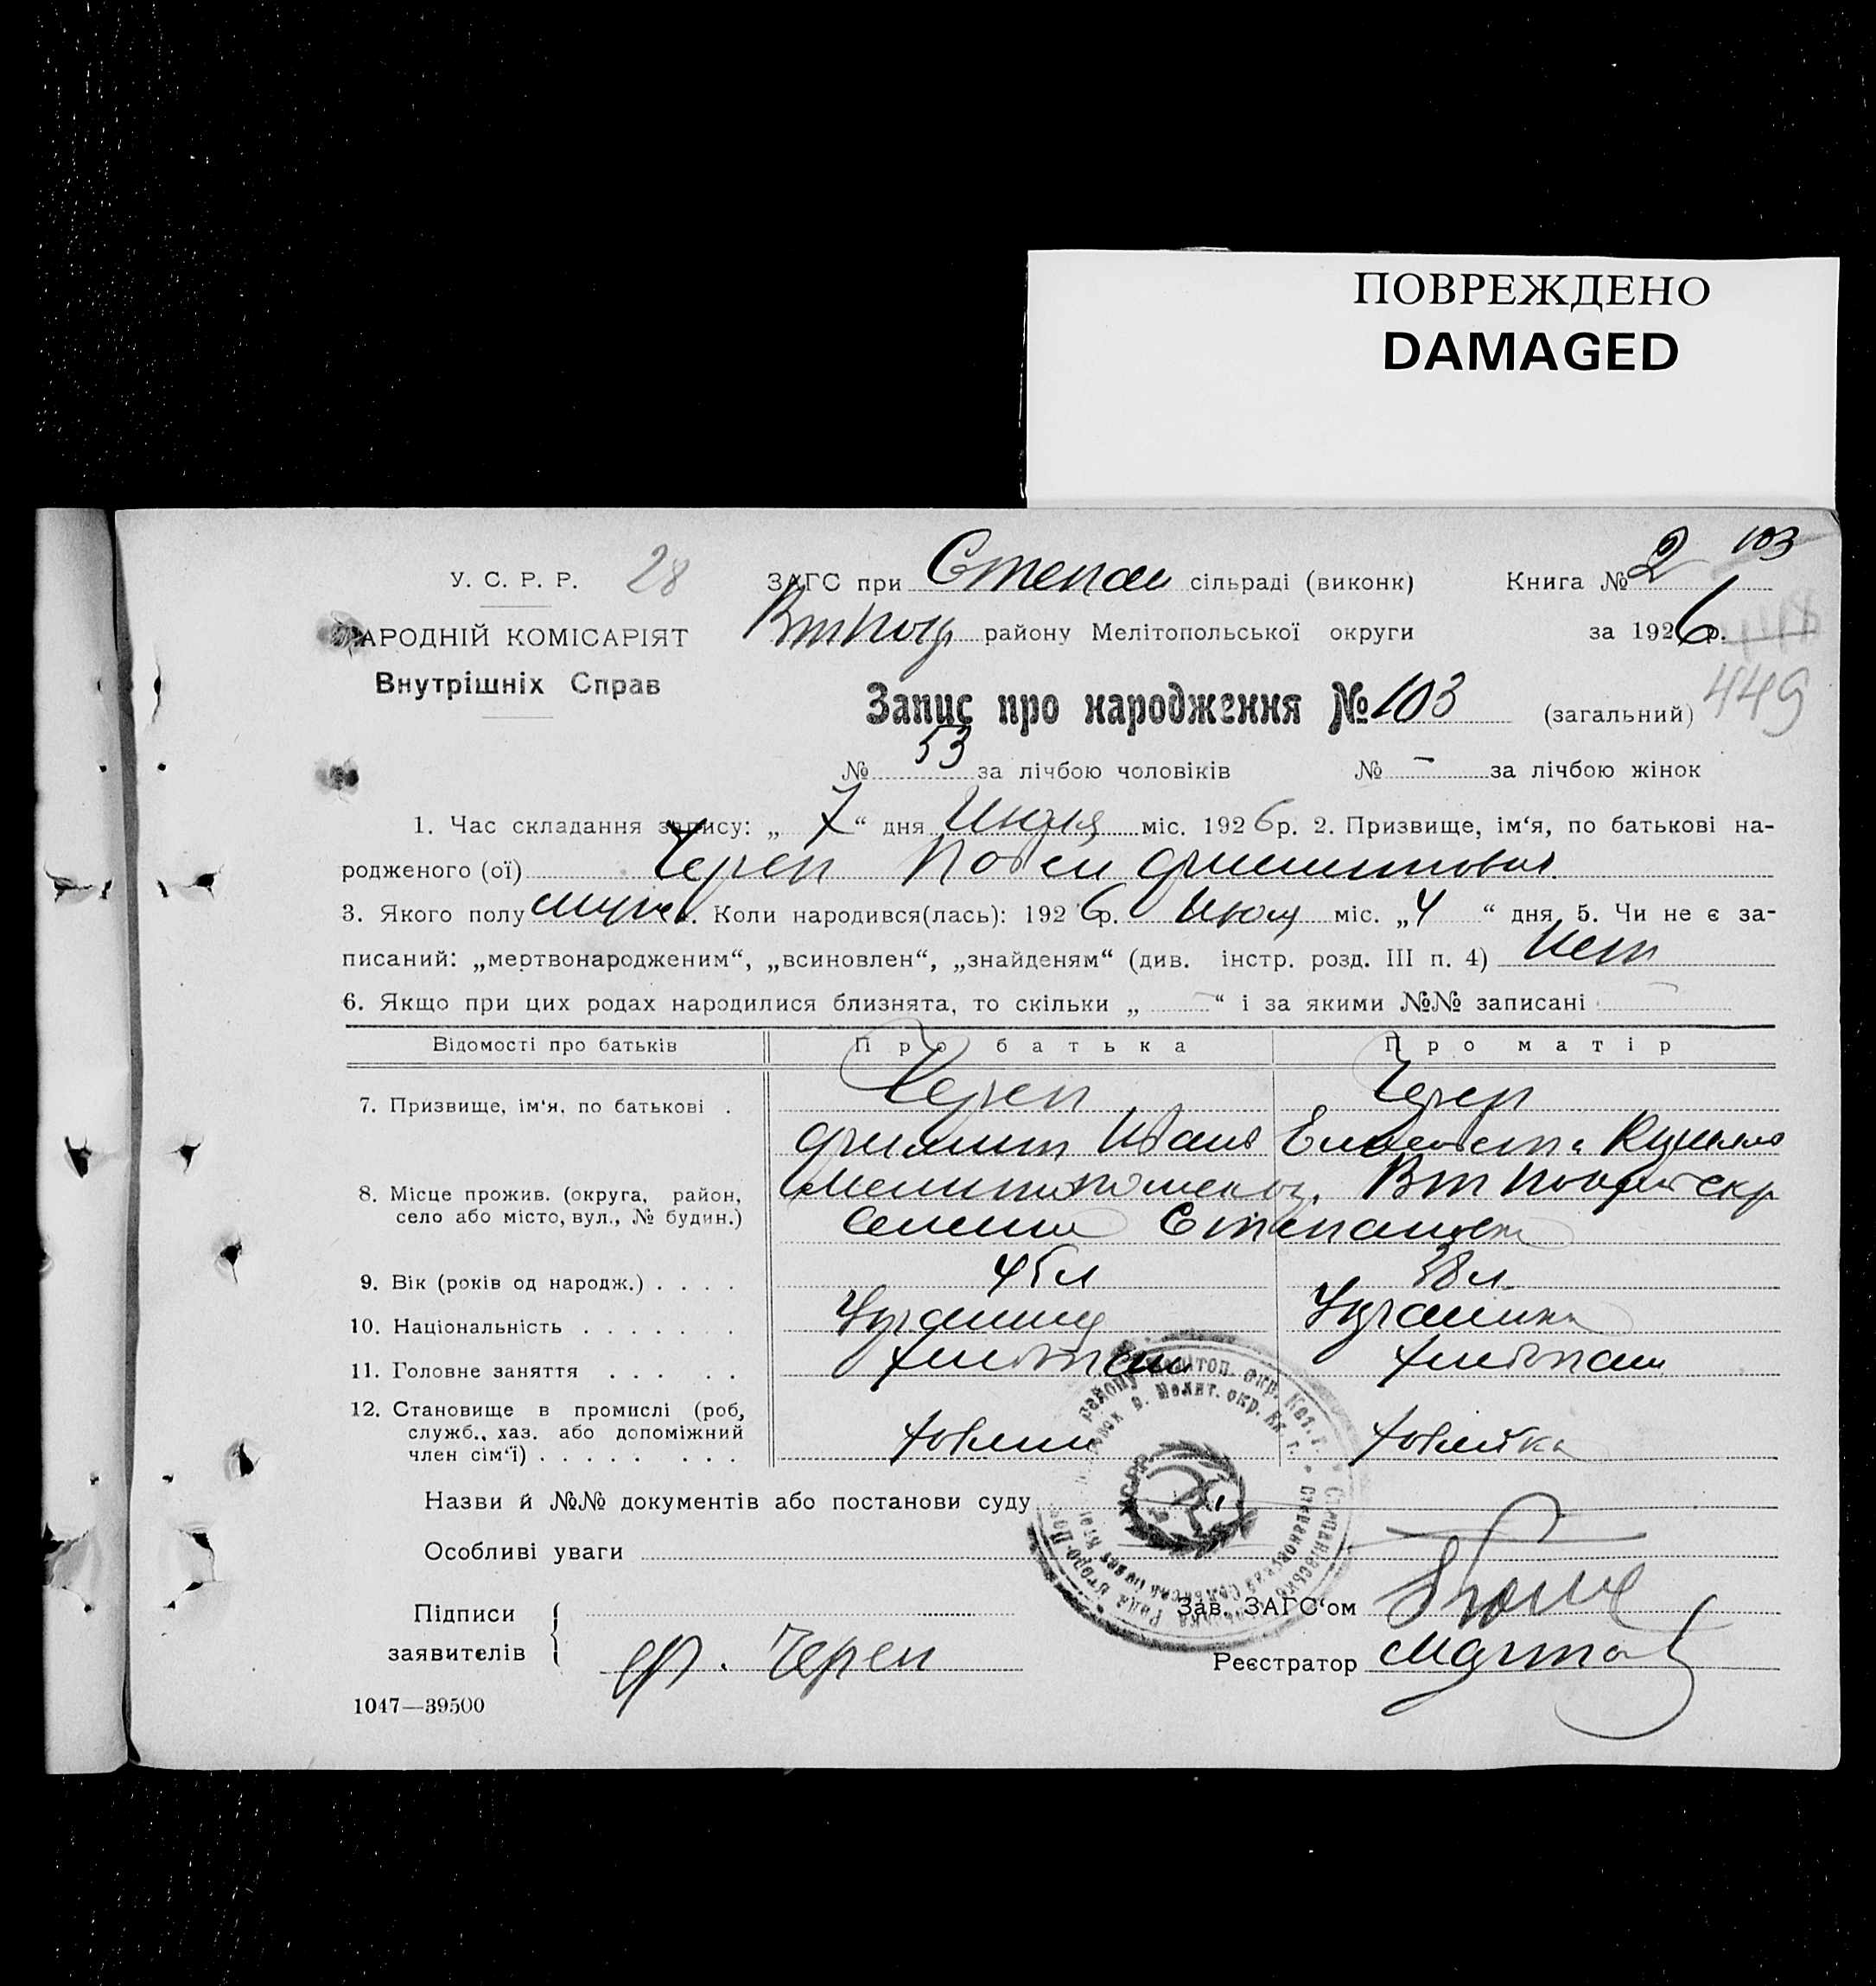 ПОВРЕЖДЕНО
DAMAGED
103
У. С. Р. Р. 28 ЗАГС при Степан сільраді (виконк) Книга № 2
НАРОДНІЙ КОМІСАРІЯТ ВтПокр району Мелітопольської округи за 1926 р.
Внутрішніх Справ
449
Запис про народження № 103 (загальний)
№ 53 за лічбою чоловіків № – за лічбою жінок
1. Час складання запису: „ 7 “ дня Июля міс. 1926 р. 2. Призвище, ім‘я, по батькові на-
родженого (ої) Череп Павел Филиппович
3. Якого полу муж. Коли народився(лась): 1926 р. Июля міс. „ 4 “ дня 5. Чи не є за-
писаний: „мертвонародженим“, „всиновлен“, „знайденям“ (див. інстр. розд. III п. 4) Нет
6. Якщо при цих родах народилися близнята, то скільки „ – “ і за якими №№ записані –
Відомості про батьків Про батька Про матір
7. Призвище, ім‘я, по батькові . Череп Череп
Филипп Иван
8. Місце прожив. (округа, район, село або місто, вул., № будин.) Мелитопольск
9. Вік (років од народж.) . . . . 45 л 38 л.
10. Національність . . . . . . . Украинец Украинка
11. Головне заняття . . . . . Хлебопаш Хлебопаш
12. Становище в промислі (роб,
служб., хаз. або допоміжний
член сім‘ї) . . . . . . . . Хозяин Хозяйка
Назви й №№ документів або постанови суду
Особливі уваги
Підписи
заявителів
Ф. Череп
Зав. ЗАГС‘ом
Реєстратор
1047—39500